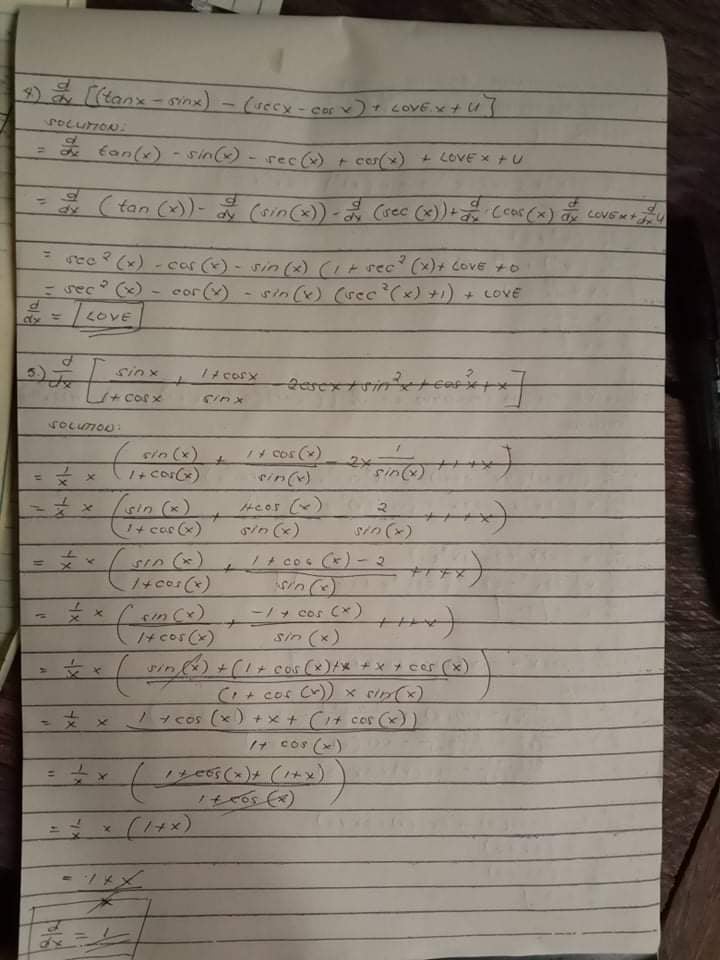 4) d/dx [(tanx - sinx) - (secx - cosx) + LOVE x + U]
SOLUTION:
= d/dx tan(x) - sin(x) - sec(x) + cos(x) + LOVE x + U
= d/dx (tan(x)) - d/dx (sin(x)) - d/dx (sec(x)) + d/dx (cos(x) d/dx LOVE x + d/dx U
= sec²(x) - cos(x) - sin(x) (1 + sec²(x) + LOVE + 0
= sec²(x) - cos(x) - sin(x) (sec²(x) + 1) + LOVE
d/dx = LOVE
5.) d/dx [sinx/1+cosx + 1+cosx/sinx - 2cscx + sin²x + cos²x + x]
SOLUTION:
= 1/x × (sin(x)/1+cos(x) + 1+cos(x)/sin(x) - 2× 1/sin(x) + 1 + x)
= 1/x × (sin(x)/1+cos(x) + 1+cos(x)/sin(x) - 2/sin(x) + 1 + x)
= 1/x × (sin(x)/1+cos(x) + 1+cos(x)-2/sin(x) + 1 + x)
= 1/x × (sin(x)/1+cos(x) + -1+cos(x)/sin(x) + 1 + x)
= 1/x × (sin(x) + (1+cos(x)+x + x + cos(x)/(1+cos(x)) × sin(x))
= 1/x × 1+cos(x)+x+(1+cos(x))/1+cos(x)
= 1/x × (1+cos(x)+(1+x)/1+cos(x))
= 1/x × (1+x)
= 1+x/x
d/dx = 1